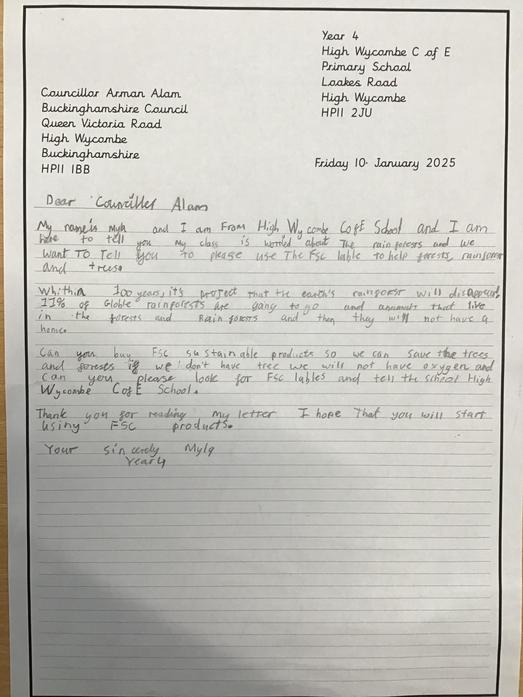 Year 4
High Wycombe C of E
Primary School
Loakes Road
High Wycombe
HP11 2JU
Councillor Arman Alam
Buckinghamshire Council
Queen Victoria Road
High Wycombe
Buckinghamshire
HP11 1BB
Friday 10th January 2025
Dear Counciller Alam
My name is Myla and I am From High Wycombe CofE School and I am
here to tell you My class is worried about The rain forests and we
want TO Tell you to please use The Fsc lable to help forests, rainforest
and treuse
Whithin 100 years, it's project That the earth's rainforest will disappeared,
11% of Globle rainforests are gang to go and animals that live
in the forests and Rain forests and then they will not have a
home.
Can you buy FSC sustainable products so we can save the trees
and foreses if we don't have tree we will not have oxygen and
can you please look for Fsc lables and tell the school High
Wycombe CofE School.
Thank you for reading my letter I hope That you will start
using FSC products.
Your sincerely Myla
Year4